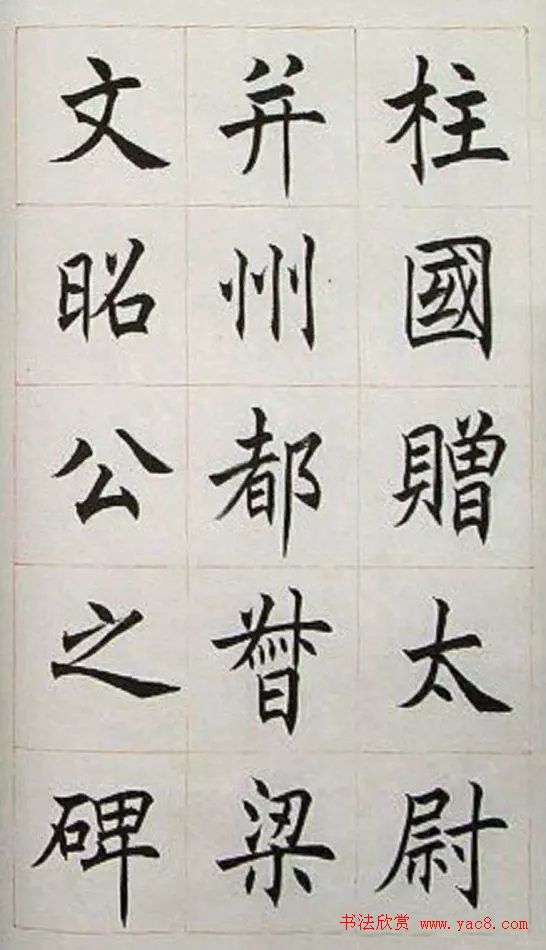 柱國贈太尉
并州都督梁
文昭公之碑
书法欣赏 www.yac8.com